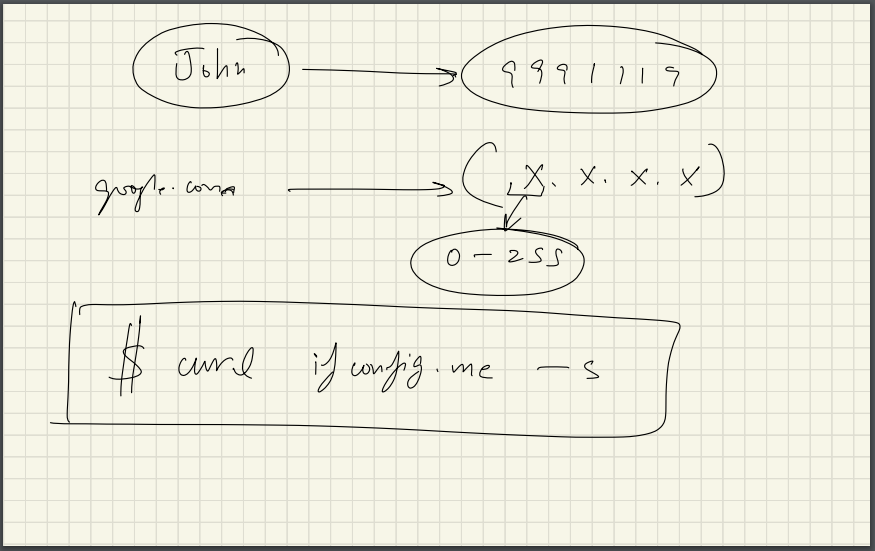 John → 9991119
google.com → (X. X. X. X)
0 - 255
$ curl ifconfig.me -s